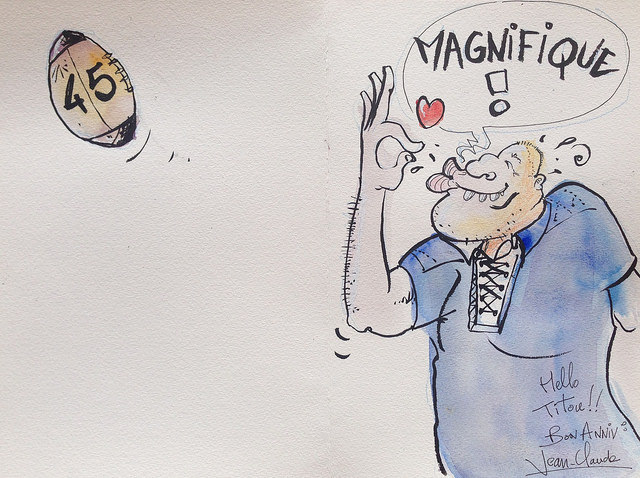 45
MAGNIFIQUE
!
Hello
Titou!!
BON ANNIV
Jean-Claude